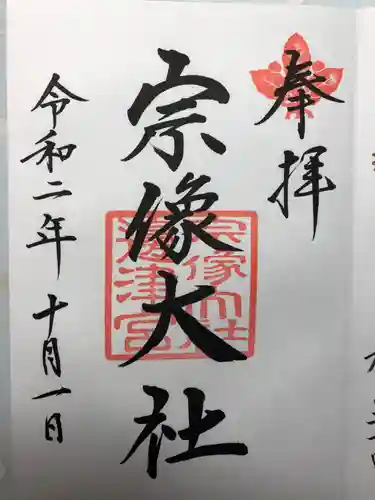 奉拝
宗像大社
令和二年十月一日
宗像大社
邊津宮